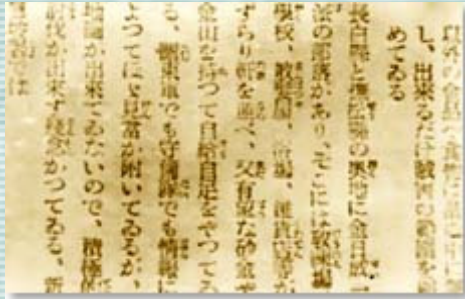 以外の
し、出來るだけ
めてゐる
長白縣と撫松縣の奧地に金日成一
派の部落があり、そこには敎練場
學校、浴場、雜貨店等が
ずらり軒を並べ、又有望な砂金や
金山を持つて自給自足をやつてゐ
る、關東軍でも守備隊でも情報に
よつてほゞ見當が附いてゐるが、
地圖が出來てゐないので、積極的
討伐が出來ず殘念がつてゐる、新